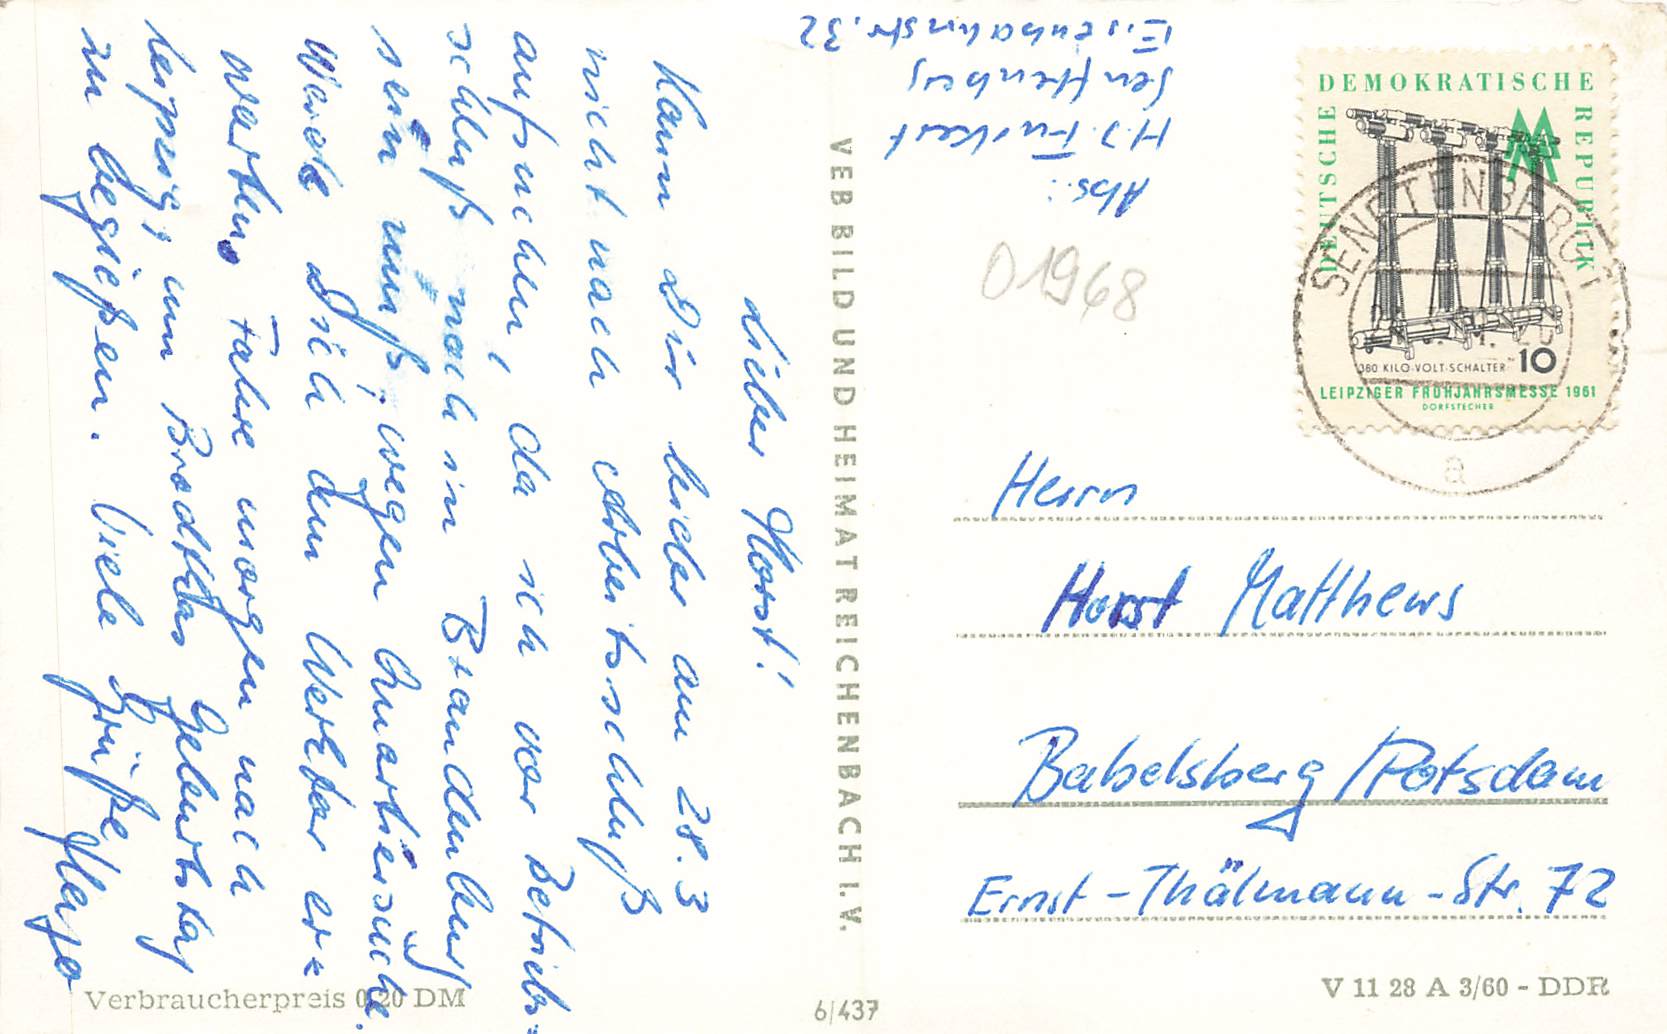 Lieber Horst!
Kann Dir leider am 28.3
nicht nach Arbeitsschluß
aufsuchen, da ich vor Betriebs-
schluß noch in Brandenburg
sein muß, wegen Quartiersuche.
Werde Dich dem Werktor er-
warten. Fahre morgen nach
Leipzig, um Geburtstag
zu begießen. Viele Grüße
Hajo
Verbraucherpreis 0,20 DM
VEB BILD UND HEIMAT REICHENBACH I.V.
6/437
Abs.:
H.J. Funkert
Senftenberg
Eisenbahnstr. 32
01968
DEMOKRATISCHE
DEUTSCHE
REPUBLIK
SENFTENBERG 1
a
380 KILO-VOLT-SCHALTER 10
LEIPZIGER FRÜHJAHRSMESSE 1961
DORFSTECHER
Herrn
Horst Matthews
Babelsberg/Potsdam
Ernst-Thälmann-Str. 72
V 11 28 A 3/60 - DDR